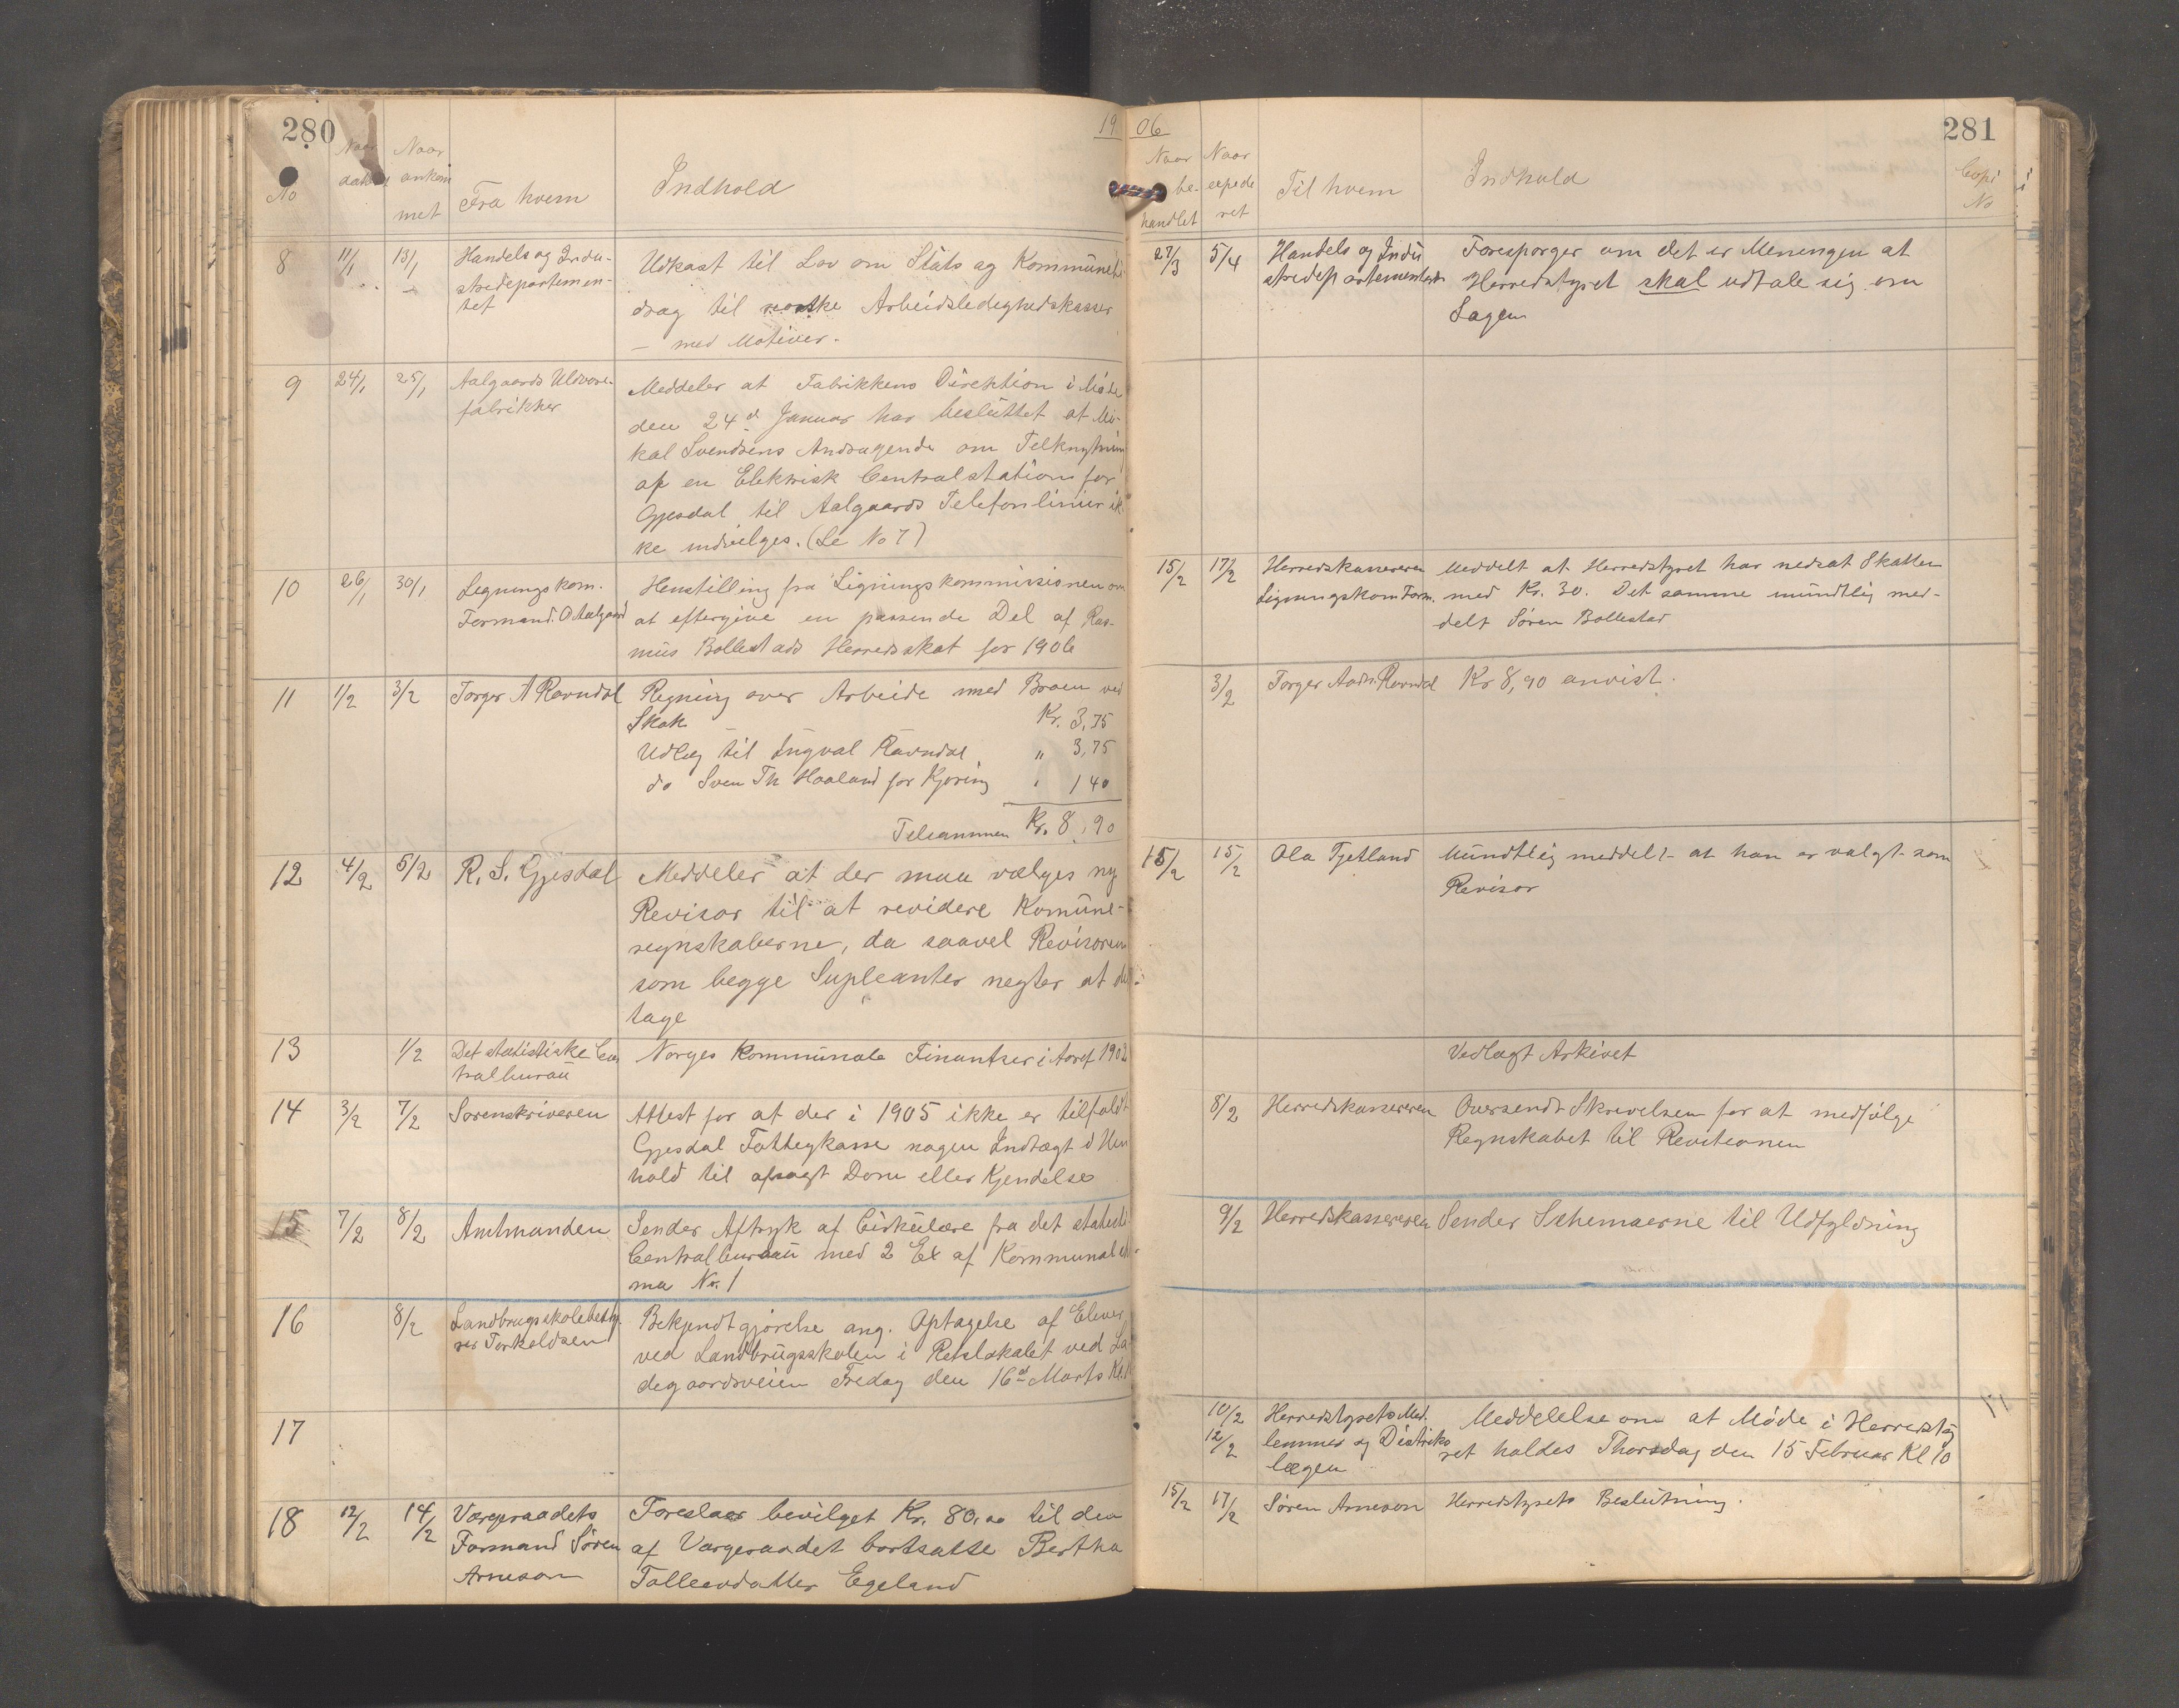 280
19
No
Naar
dateret
Naar
ankom
met
Fra hvem
Indhold
8
11/1
13/1
Handels og Indu-
stridepartemen-
tet
Udkast til Lov om Stats og Kommunebi
drag til norske Arbeidsledighedskasser
— med Motiver.
9
24/1
25/1
Aalgaards Uldvare-
fabrikker
Meddeler at Fabrikkens Direktion i Møde
den 24d Januar har besluttet at Mi-
kal Svendsens Andragende om Telknytning
af en Elektrisk Centralstation for
Gjesdal til Aalgaards Telefonlinier ik
ke indvilges. (Se No 7)
10
26/1
30/1
Legningskom.
Formand. O Aalgaard
Henstilling fra Ligningskommissionen om
at eftergive en passende Del af Ras-
mus Bollestads Herredsskat for 1906
11
1/2
3/2
Torger A Ravndal
Regning over Arbeide med Broen ved
Skak Kr. 3,75
Udlæg til Ingval Ravndal " 3,75
do Sven Th Haaland for Kjøring " 1 40
Telsammen Kr. 8,90
12
4/2
5/2
R. S. Gjesdal
Meddeler at der maa vælges ny
Revisor til at revidere Komune-
regnskaberne, da saavel Revisoren
som begge Supleanter negter at del-
tage
13
1/2
Det statistiske Cen
tralbureau
Norges Kommunale Finantser i Aaret 1902
14
3/2
7/2
Sorenskriveren
Attest for at der i 1905 ikke er tilfaldt
Gjesdal Fattigkasse nogen Indtægt i Hen
hold til afsagt Dom eller Kjendelse
15
7/2
8/2
Amtmanden
Sender Aftryk af Cirkulære fra det statisti
Centralbureau med 2 Ex af Kommunalske-
ma No. 1
16
8/2
Landbrugsskolebesty.
rer Torkeldsen
Bekjendtgjørelse ang. Optagelse af Elever
ved Landbrugsskolen i Retslokalet ved La
degaardsveien Fredag den 16d Marts Kl. 1
17
18
12/2
14/2
Værgeraadets
Formand Søren
Arneson
Foreslaar bevilget Kr. 80,00 til den
af Værgeraadet bortsatte Bertha
Tolleivdatter Egeland
06
281
Naar
be-
handlet
Naar
expede
ret
Til hvem
Indhold
Copi
No
27/3
5/4
Handels og Indu
stridepartementet
Forespørger om det er Meningen at
Herredstyret skal udtale sig om
Sagen
15/2
17/2
Herredskassereren
LigningskomForm.
Meddelt at Herredstyret har nedsat Skatten
med Kr. 30. Det samme mundtlig med-
delt Søren Bollestad
3/2
Torger Aadn. Ravndal
Kr 8,90 anvist.
15/2
15/2
Ola Tjetland
Mundtlig meddelt at han er valgt som
Revisor
Vedlagt Arkivet
8/2
Herredskassereren
Oversendt Skrivelsen for at medfølge
Regnskabet til Revisionen
9/2
Herredskassereren
Sender Schemaerne til Udfyldning
10/2
12/2
Herredstyrets Med.
lemmer og Distrikts
lægen
Meddelelse om at Møde i Herredsty
ret holdes Thorsdag den 15 Februar Kl 10
15/2
17/2
Søren Arneson
Herredstyrets Beslutning.